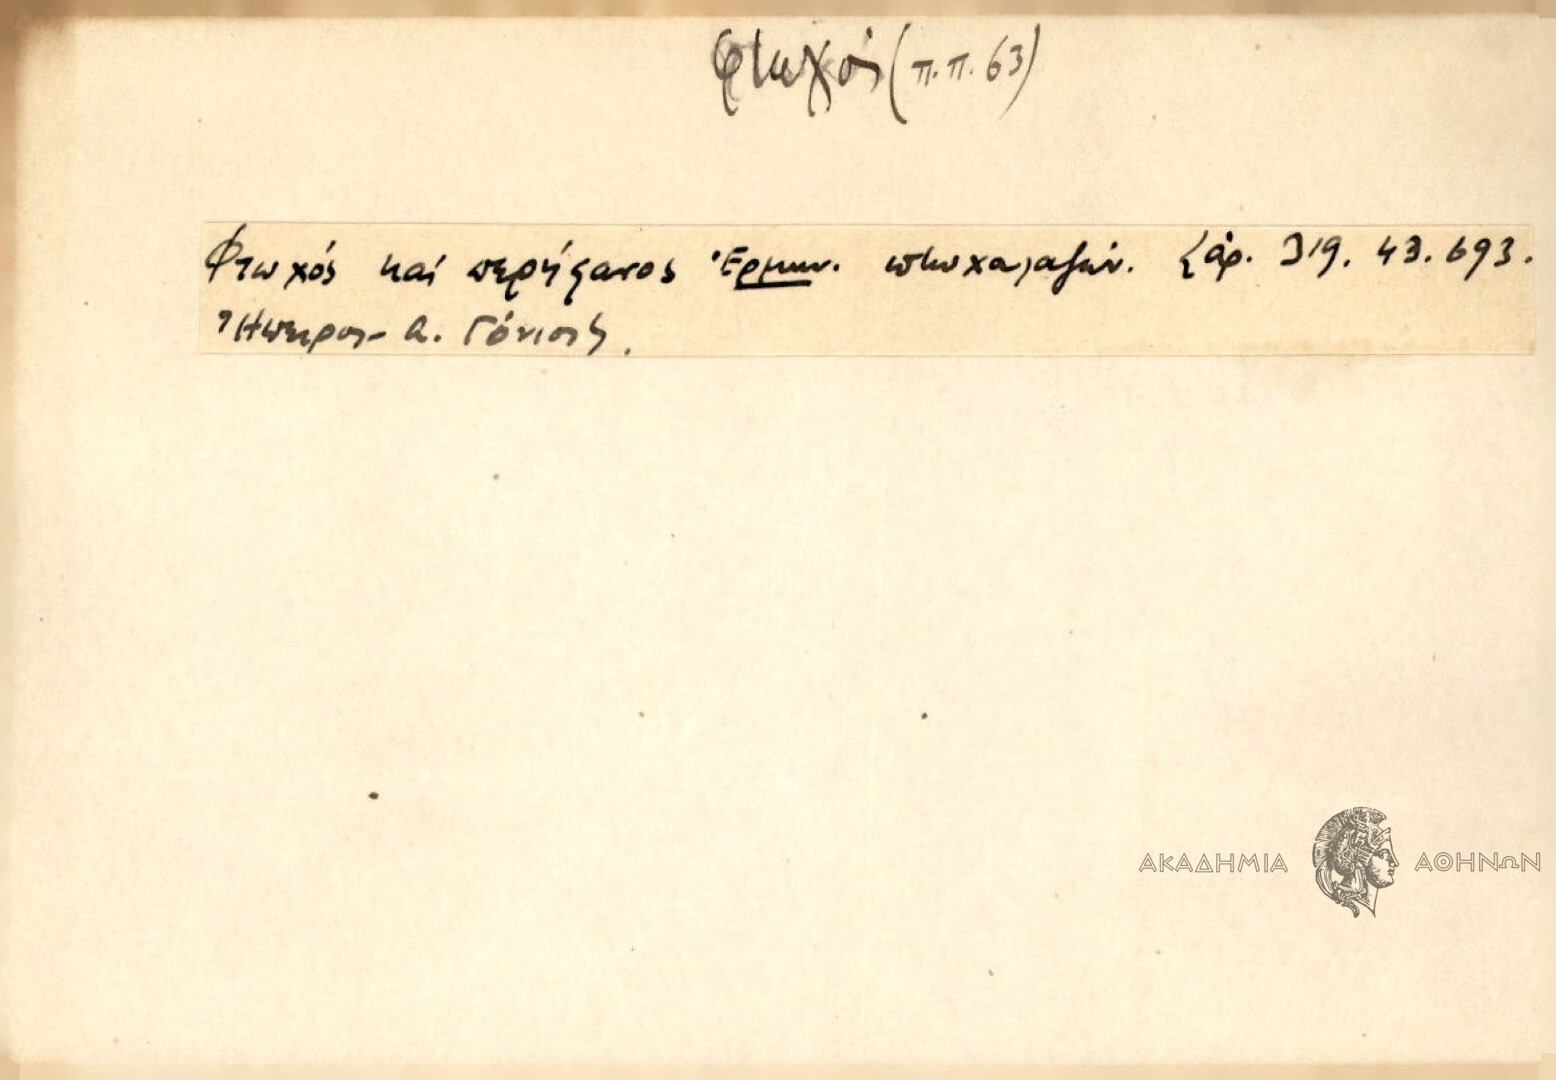 φτωχός (π.π. 63)
Φτωχός καί περήφανος Ἑρμην. πτωχαλαζών. {ἀρ. 319. 43. 693.
Ἤπειρος- α. Γόνιος.
ΑΚΑΔΗΜΙΑ ΑΘΗΝΩΝ